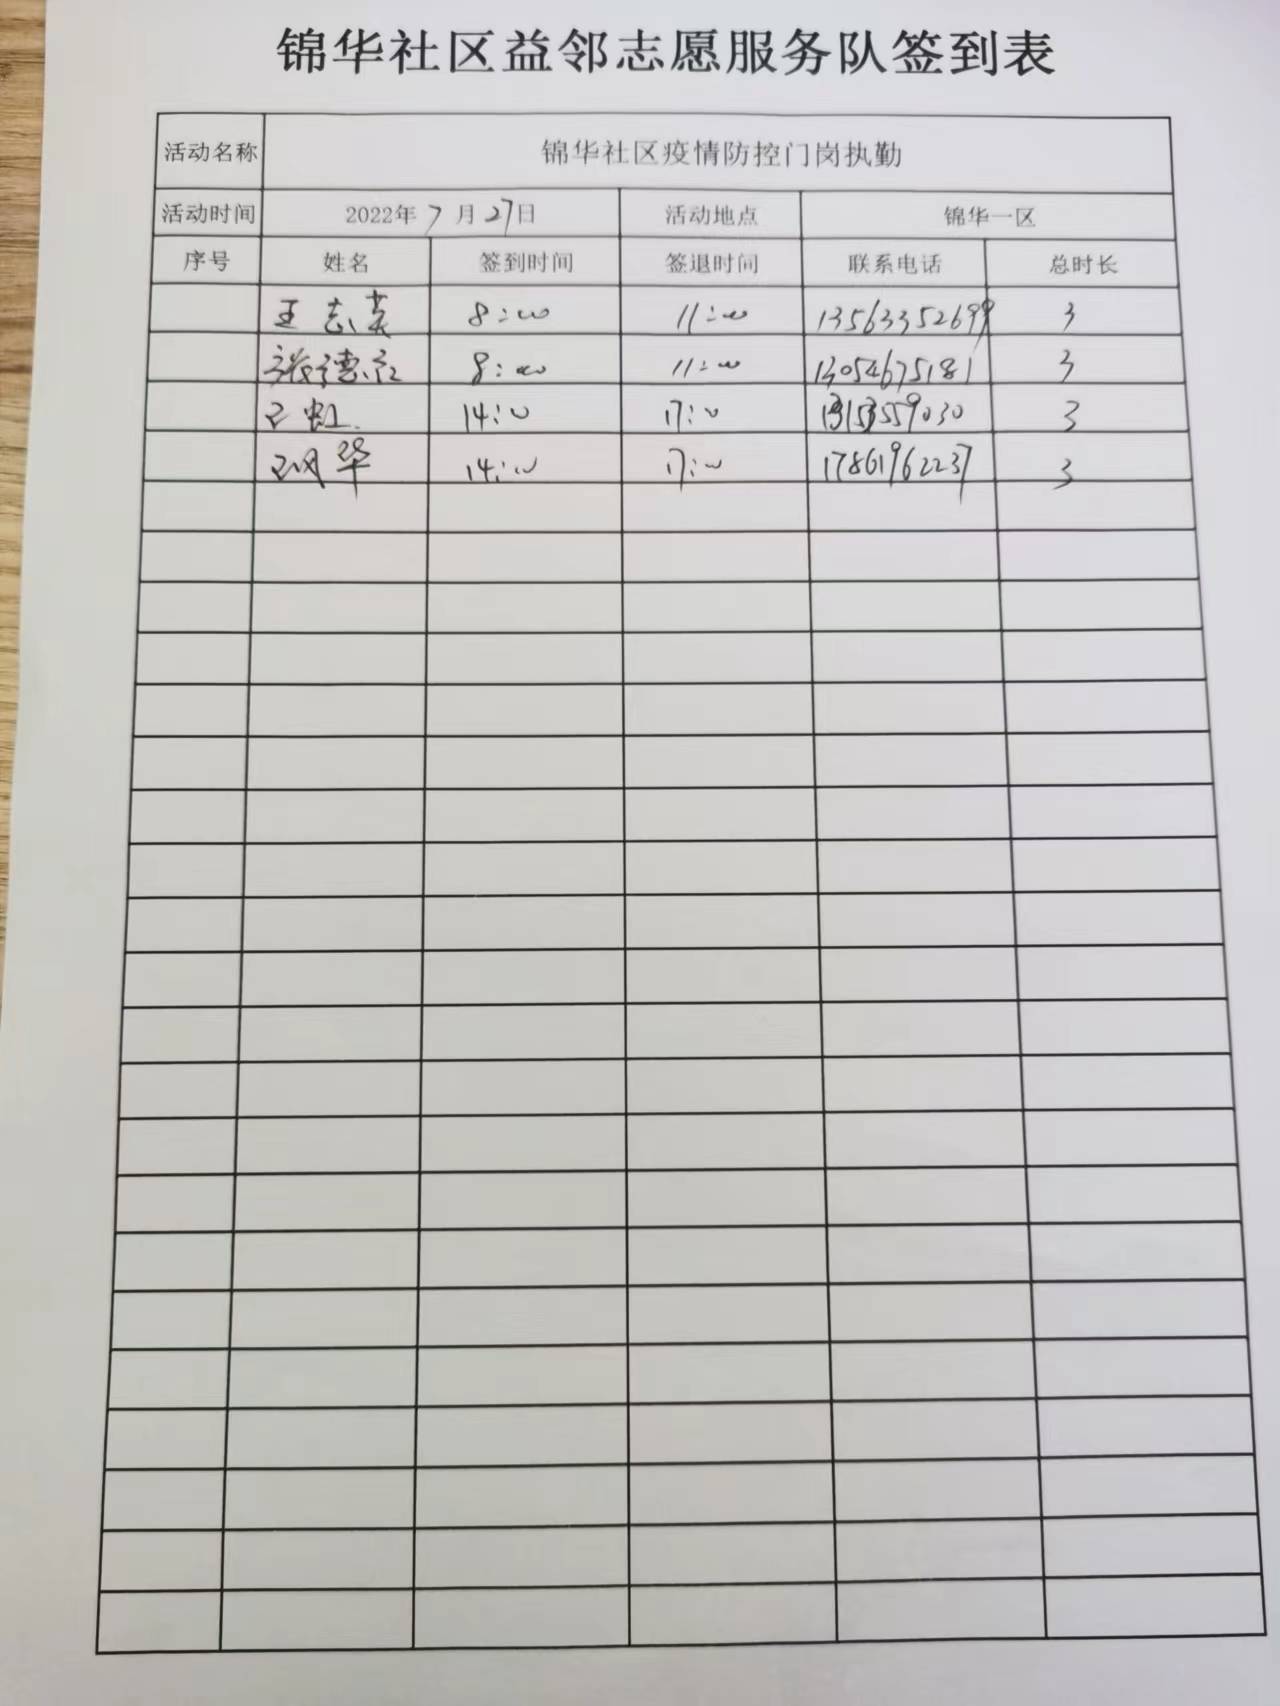 锦华社区益邻志愿服务队签到表
活动名称 锦华社区疫情防控门岗执勤
活动时间 2022年7月27日 活动地点 锦华一区
序号 姓名 签到时间 签退时间 联系电话 总时长
王志英 8:00 11:00 13563352699 3
张德江 8:00 11:00 13054675181 3
王虹 14:00 17:00 3
14:00 17:00 17861962237 3